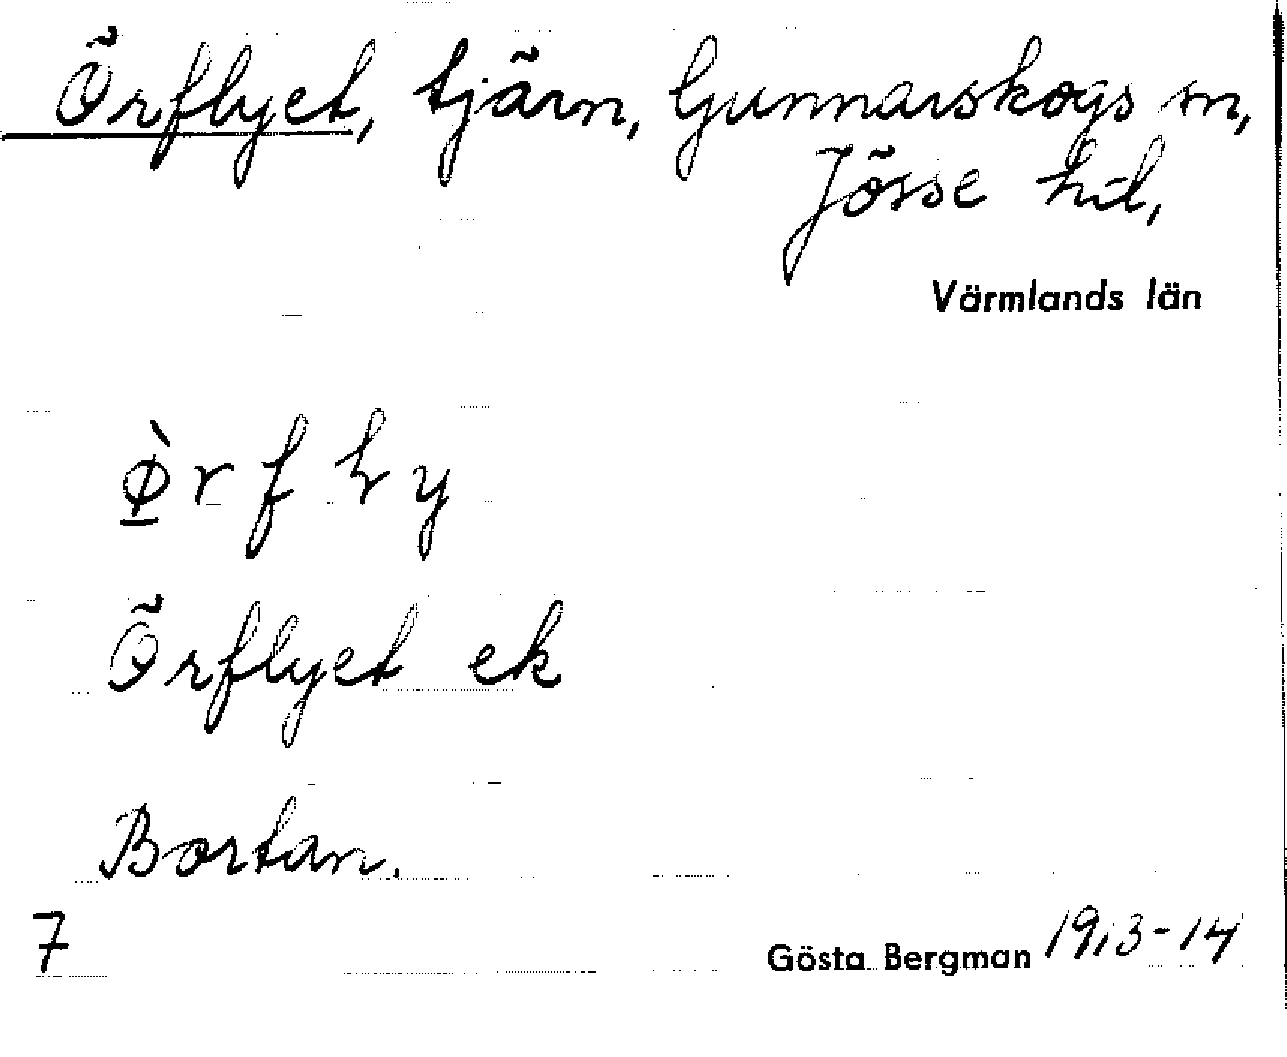 Örflyet, tjärn, Gunnarskogs sn,
Jösse hd,
Värmlands län
Örflyet ek
Bortan.
7
Gösta Bergman 1913-14